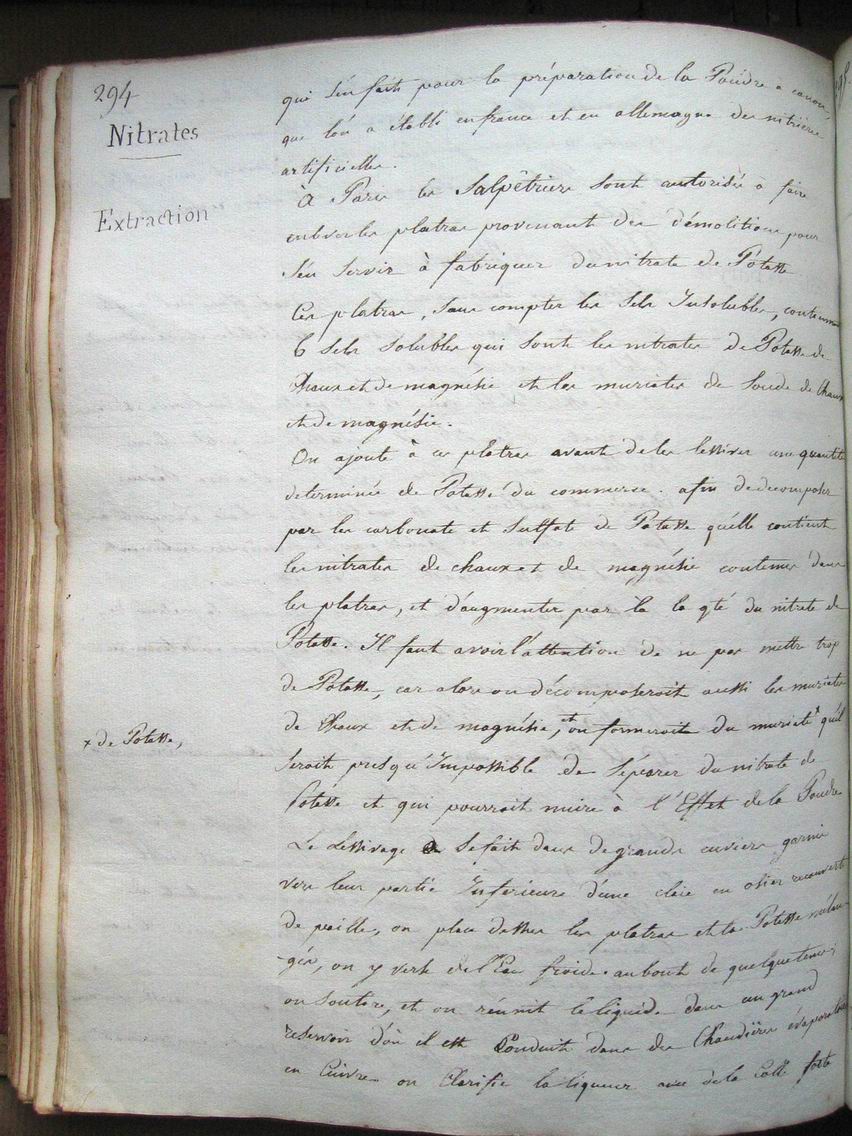 294
Nitrates
Extraction
qui s'en fait pour la préparation de la Poudre à canon,
que l'on a établi en france et en allemagne des nitrières
artificielles.
À Paris les Salpêtriers sont autorisés à faire
enlever les platras provenant des démolitions pour
s'en servir à fabriquer du nitrate de Potasse
Ces platras, sans compter les sels Insolubles, contiennent
6 sels solubles qui sont les nitrates de Potasse de
Chaux et de magnésie et les muriates de soude de Chaux
et de magnésie.
On ajoute à ces platras avant de les lessiver une quantité
determinée de Potasse du commerce. afin de decomposer
par les carbonate et sulfate de Potasse qu'elle contient
les nitrates de chaux et de magnésie contenus dans
les platras, et d'augmenter par là la qté du nitrate de
Potasse. Il faut avoir l'attention de ne pas mettre trop
de Potasse, car alors on décomposeroit aussi les muriates
de Chaux et de magnésie, et on formeroit du muriate x qu'il
x de Potasse,
seroit presqu'Impossible de séparer du nitrate de
Potasse et qui pourroit nuire à l'Effet de la Poudre
Le Lessivage se fait dans de grands cuviers garnis
vers leur partie Inferieure d'une claie en osier recouverte
de paille, on place dessus les platras et la Potasse mélan-
-gés, on y verse de l'Eau froide. au bout de quelque tems
on soutire, et on réunit le liquide dans un grand
reservoir d'où il est Conduit dans des Chaudières évaporatoires
en Cuivre on Clarifie la liqueur avec de la Colle forte